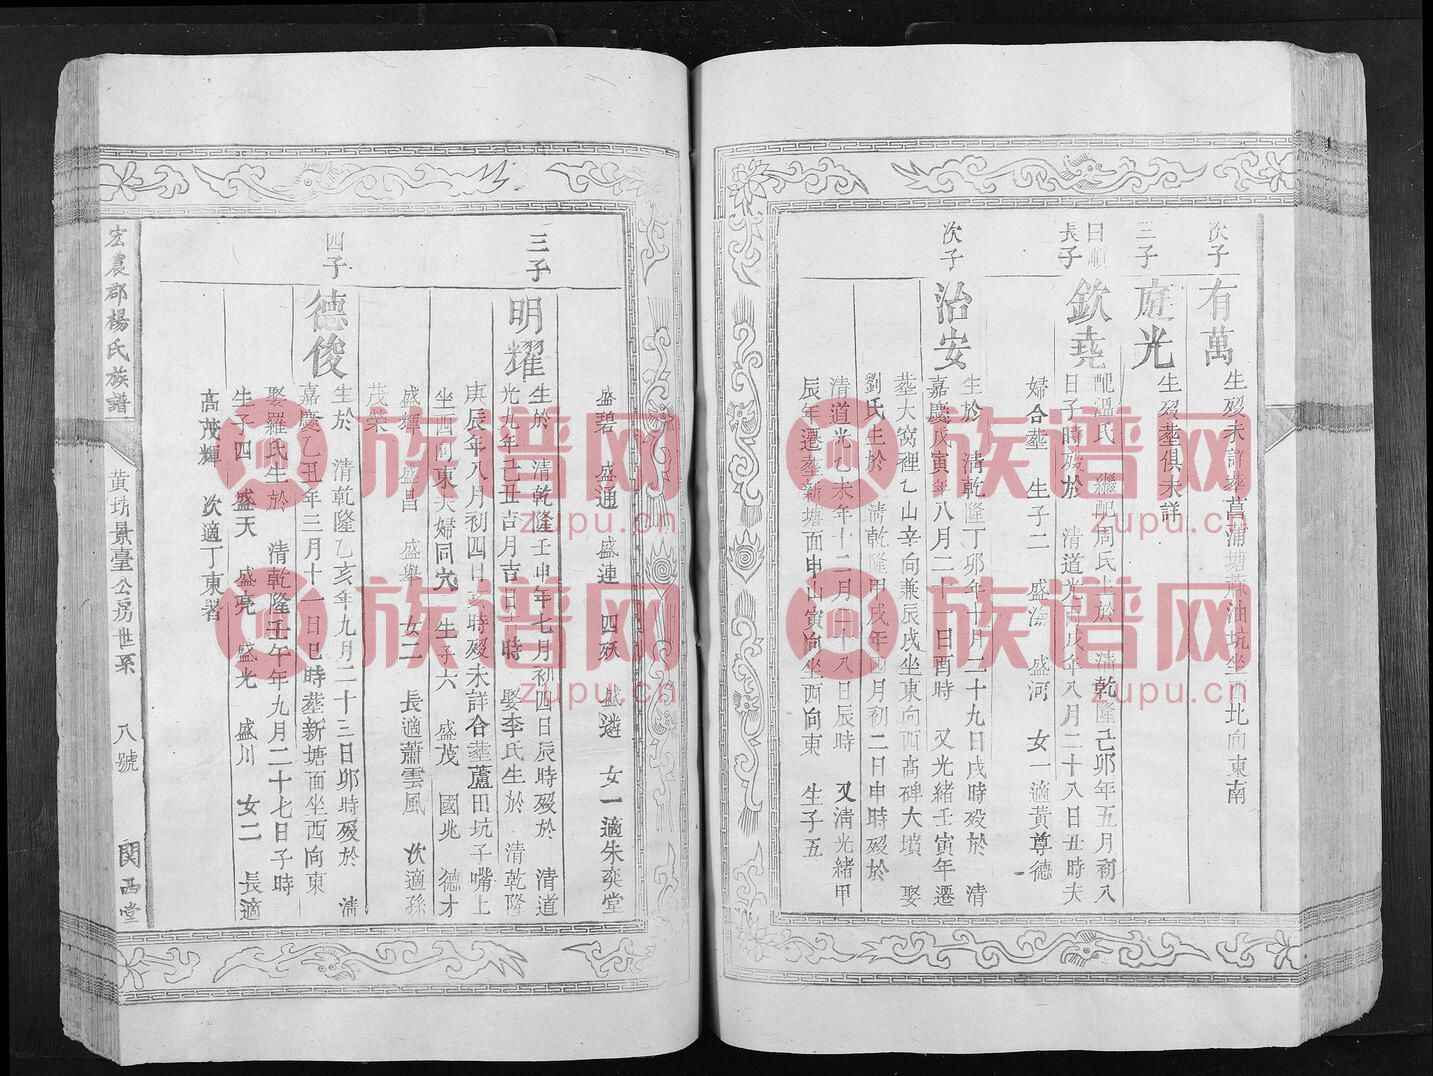 次子
有萬
生歿未詳葬菖蒲塘蔴油坑坐西北向東南
三子
庭光
生歿塟俱未詳
日順
長子
欽堯
配溫氏 繼配周氏生於 清乾隆己卯年五月初八
日子時歿於 清道光戊戌年八月二十八日丑時夫
婦合塟 生子二 盛海 盛河 女一適黃尊德
次子
治安
生於 清乾隆丁卯年十月二十九日戌時歿於 清
嘉慶戊寅年八月二十一日酉時 又光緒壬寅年遷
葬大窩裡乙山辛向兼辰戌坐東向西高碑大墳 娶
劉氏生於 清乾隆甲戌年 月初二日申時歿於
清道光乙未年十二月 十八日辰時 又清光緒甲
辰年遷葬新塘面申山寅向坐西向東 生子五
盛碧 盛通 盛連 四殀 盛遴 女一適朱奕堂
三子
明耀
生於 清乾隆壬申年七月初四日辰時歿於 清道
光九年己丑吉月吉日 時 娶李氏生於 清乾隆
庚辰年八月初四日亥時歿未詳合塟蘆田坑子嘴上
坐西向東夫婦同穴 生子六 盛茂 國兆 德才
盛輝 盛昌 盛舉 女二 長適蕭雲風 次適孫
茂榮
四子
德俊
生於 清乾隆乙亥年九月二十三日卯時歿於 清
嘉慶乙丑年三月十一日巳時葬新塘面坐西向東
娶羅氏生於 清乾隆壬午年九月二十七日子時
生子四 盛天 盛亮 盛光 盛川 女二 長適
高茂輝 次適丁東署
宏農郡楊氏族譜
黃坊景臺公房世系
八號
関西堂
族谱网
zupu.cn
族谱网
zupu.cn
族谱网
zupu.cn
族谱网
zupu.cn